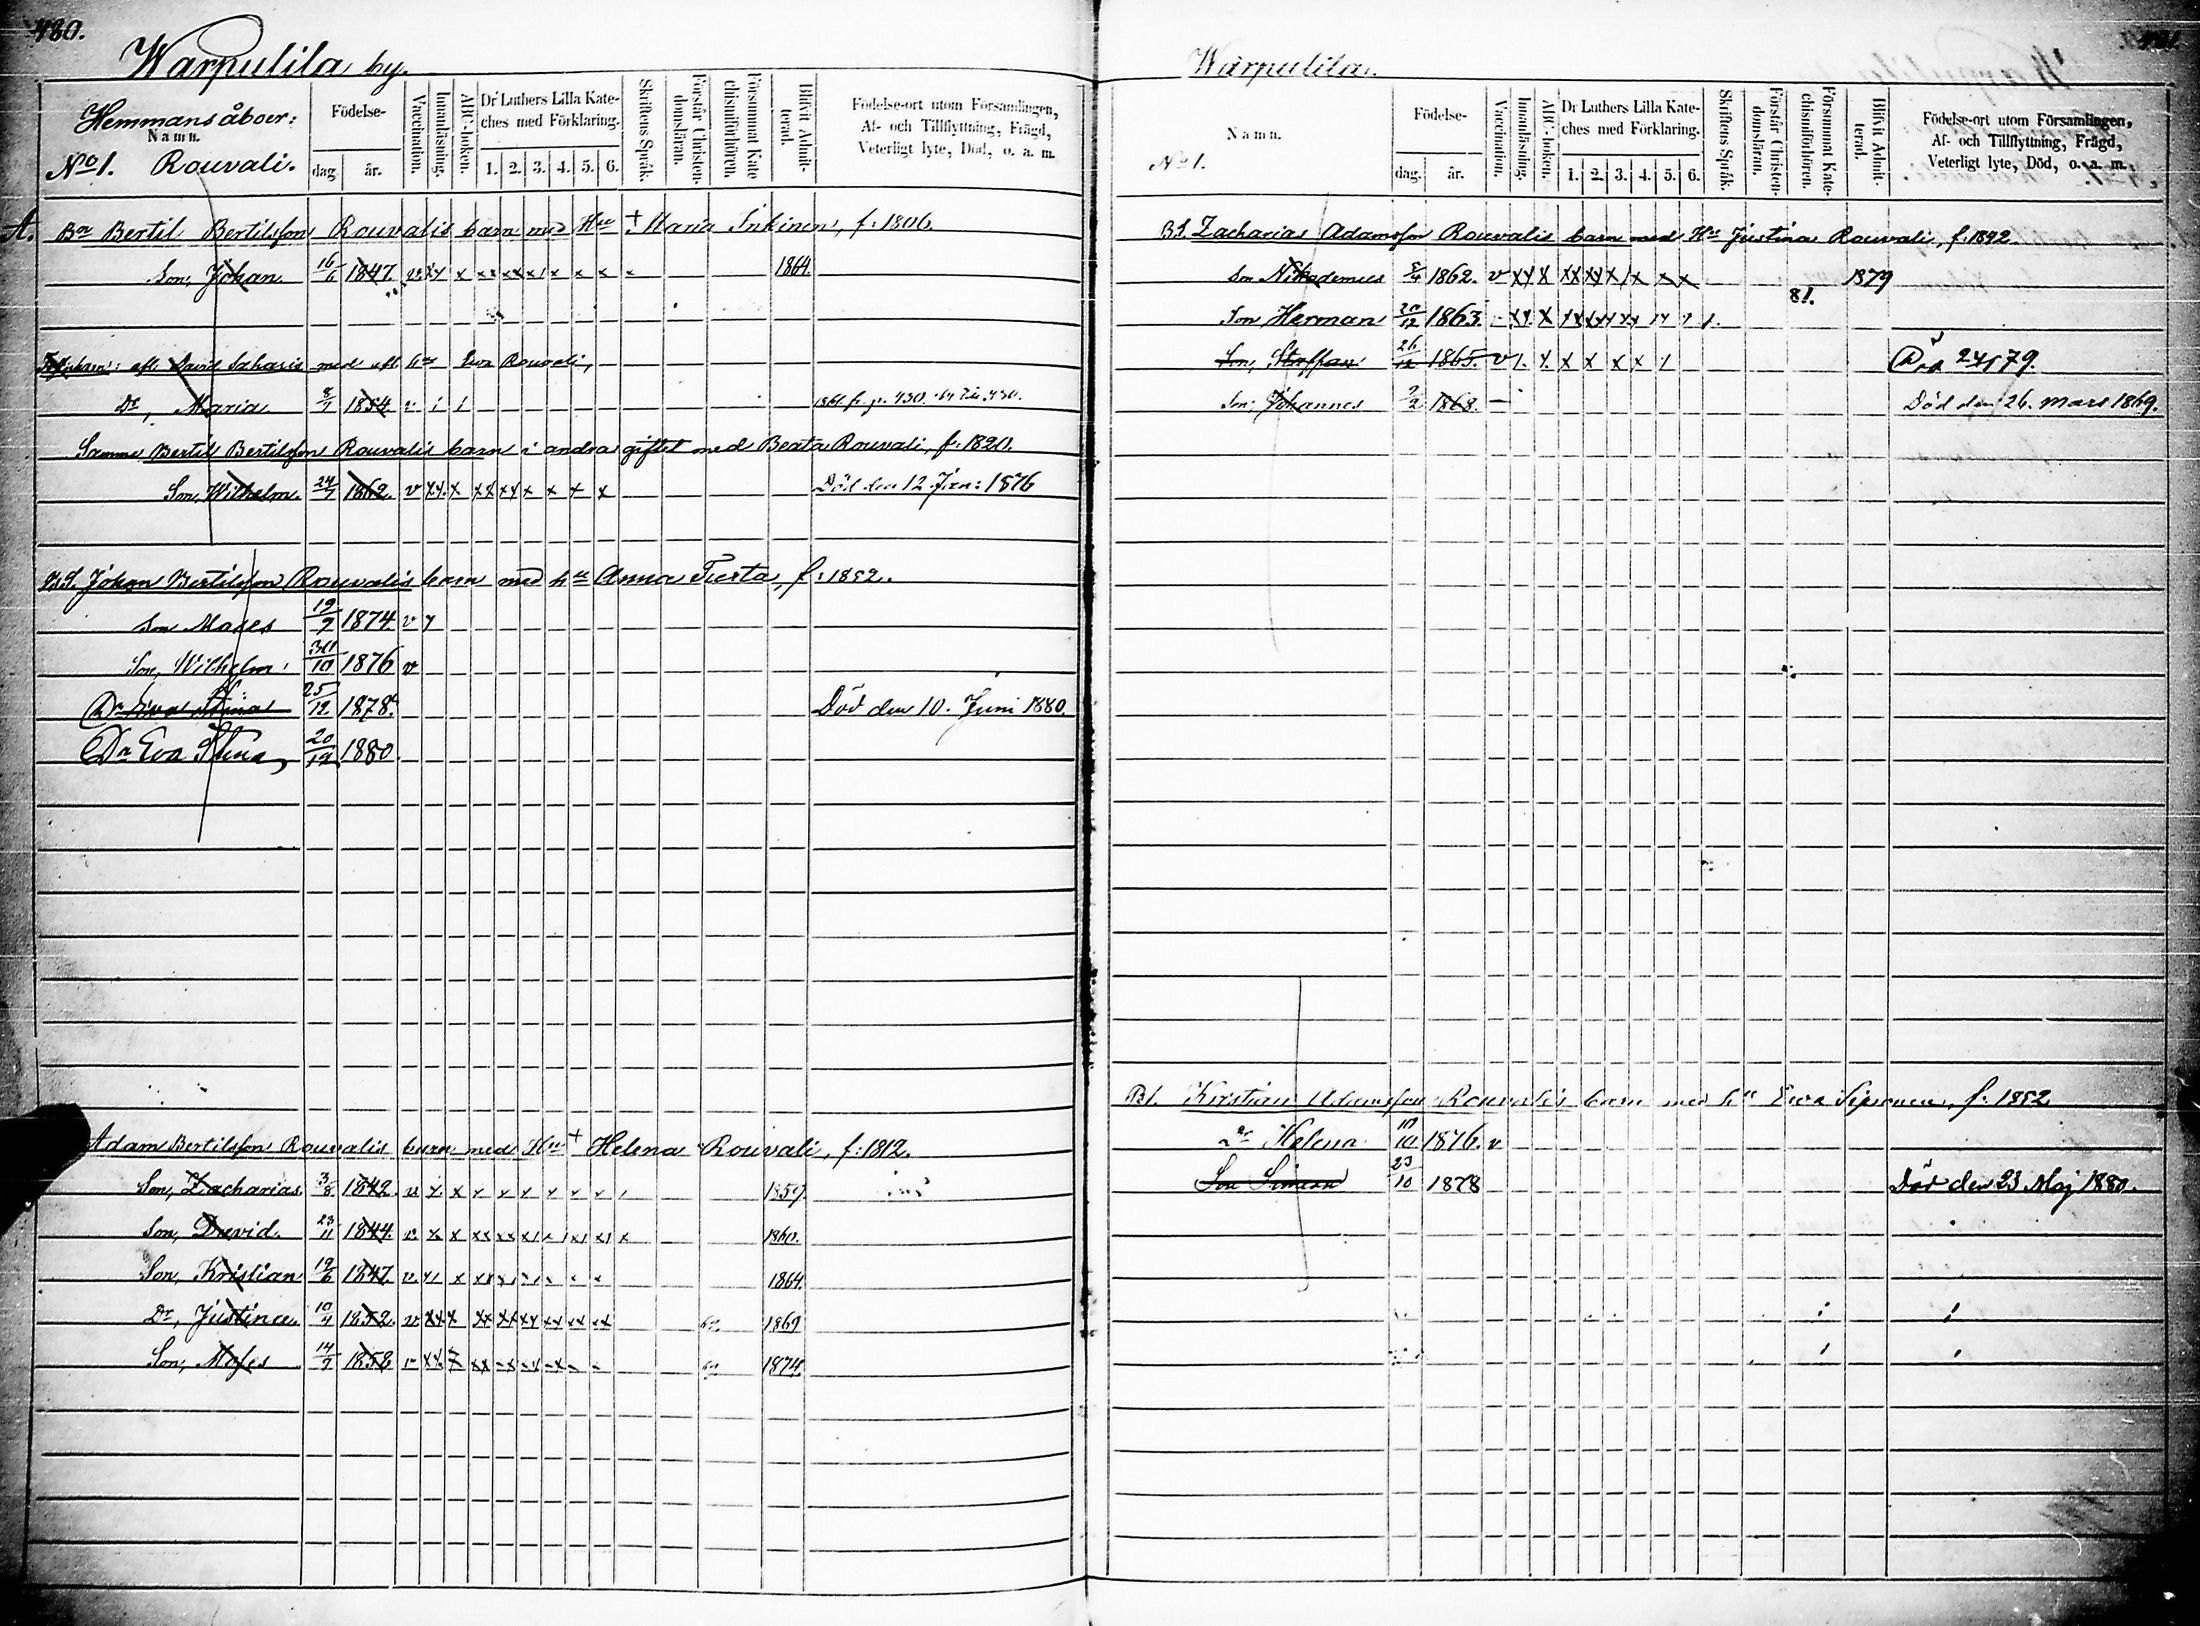 480.
Warpulila by.
Hemmansåboer:
Namn.
No 1. Rouvali.
Födelse-
dag. år.
Vaccination.
Innanläsning.
ABC-boken.
Dr Luthers Lilla Kate-
ches med Förklaring.
1. 2. 3. 4. 5. 6.
Skriftens Språk.
Förstår Christen-
domsläran.
Försummat Kate-
chismiförhören.
Blifvit Admit-
terad.
Födelse-ort utom Församlingen,
Af- och Tillflyttning, Frägd,
Veterligt lyte, Död, o. a. m.
A. Bn Bertil Bertilsson Rouvalis barn med Hu + Maria Inkinen, f: 1806.
Son, Johan 16/6 1847. v. xy x x x x x x 1864.
afl. David med afl. hu Ewa Rouvali,
Dr, Maria 8/7 1854 v 1 1 430.
Samme Bertil Bertilsson Rouvalis barn i andra giftet med Beata Rouvali, f. 1820.
Son, Wilhelm. 24/7 1862. v xx x xx xx x x x x Död den 12 Jan: 1876
B.S. Johan Bertilsson Rouvalis barn med hu Anna Tiesta, f: 1852.
Son Moses 19/7 1874 v y
Son, Wilhelm 30/10 1876 v
Dr Eva Stina 25/12 1878. Död den 10. Juni 1880.
Dr Eva Stina, 20/12 1880.
Adam Bertilsson Rouvalis barn med Hu + Helena Rouvali, f: 1812.
Son, Zacharias 3/8 1842. v x 1859.
Son, David. 23/11 1844. v. x x xx xx 1860.
Son, Kristian 19/6 1847. v. x 1864.
Dr, Justina. 10/4 1852. v xx x xx xx xx xx xx xx 1869
Son, Moses 14/7 1858 v xx 1874.
481.
Warpulila.
Namn.
No 1.
Födelse-
dag. år.
Vaccination.
Innanläsning.
ABC-boken.
Dr Luthers Lilla Kate-
ches med Förklaring.
1. 2. 3. 4. 5. 6.
Skriftens Språk.
Förstår Christen-
domsläran.
Försummat Kate-
chismiförhören.
Blifvit Admit-
terad.
Födelse-ort utom Församlingen,
Af- och Tillflyttning, Frägd,
Veterligt lyte, Död, o. a. m.
B.S. Zacharias Adamsson Rouvalis barn med Hu Justina Rouvali, f. 1842.
Son Nikodemus 5/4 1862. v xx x xx xx x x x x 1879
81.
Son Herman 20/12 1863. xx x
Son, Staffan 26/12 1865. v 1. x. x x x x 1 Död 79.
Son, Johannes 2/2 1868. Död den 26. Mars 1869.
B.S. Kristian Adamsson Rouvalis barn med hu Ewa Siponen, f. 1852.
Dr Helena 10/10 1876. v
Son Simon 23/10 1878 Död den 23 Maj 1880.